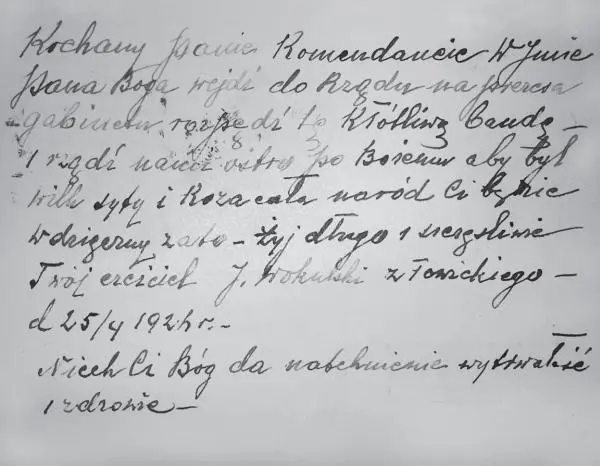 Kochany Panie Komendancie W Jmie
Pana Boga wejdź do Rządu na prezesa
gabinetu rozpędź tę Kłótliwą bandę –
i rządź nami ostro po Bożemu aby był
wilk syty i Koza cała naród Ci będzie
wdzięczny zato – Żyj długo i szczęśliwie
Twój czciciel J. Wokulski z Łowickiego –
d 25/4 192 r. –
Niech Ci Bóg da natchnienie wytrwałość
i zdrowie –